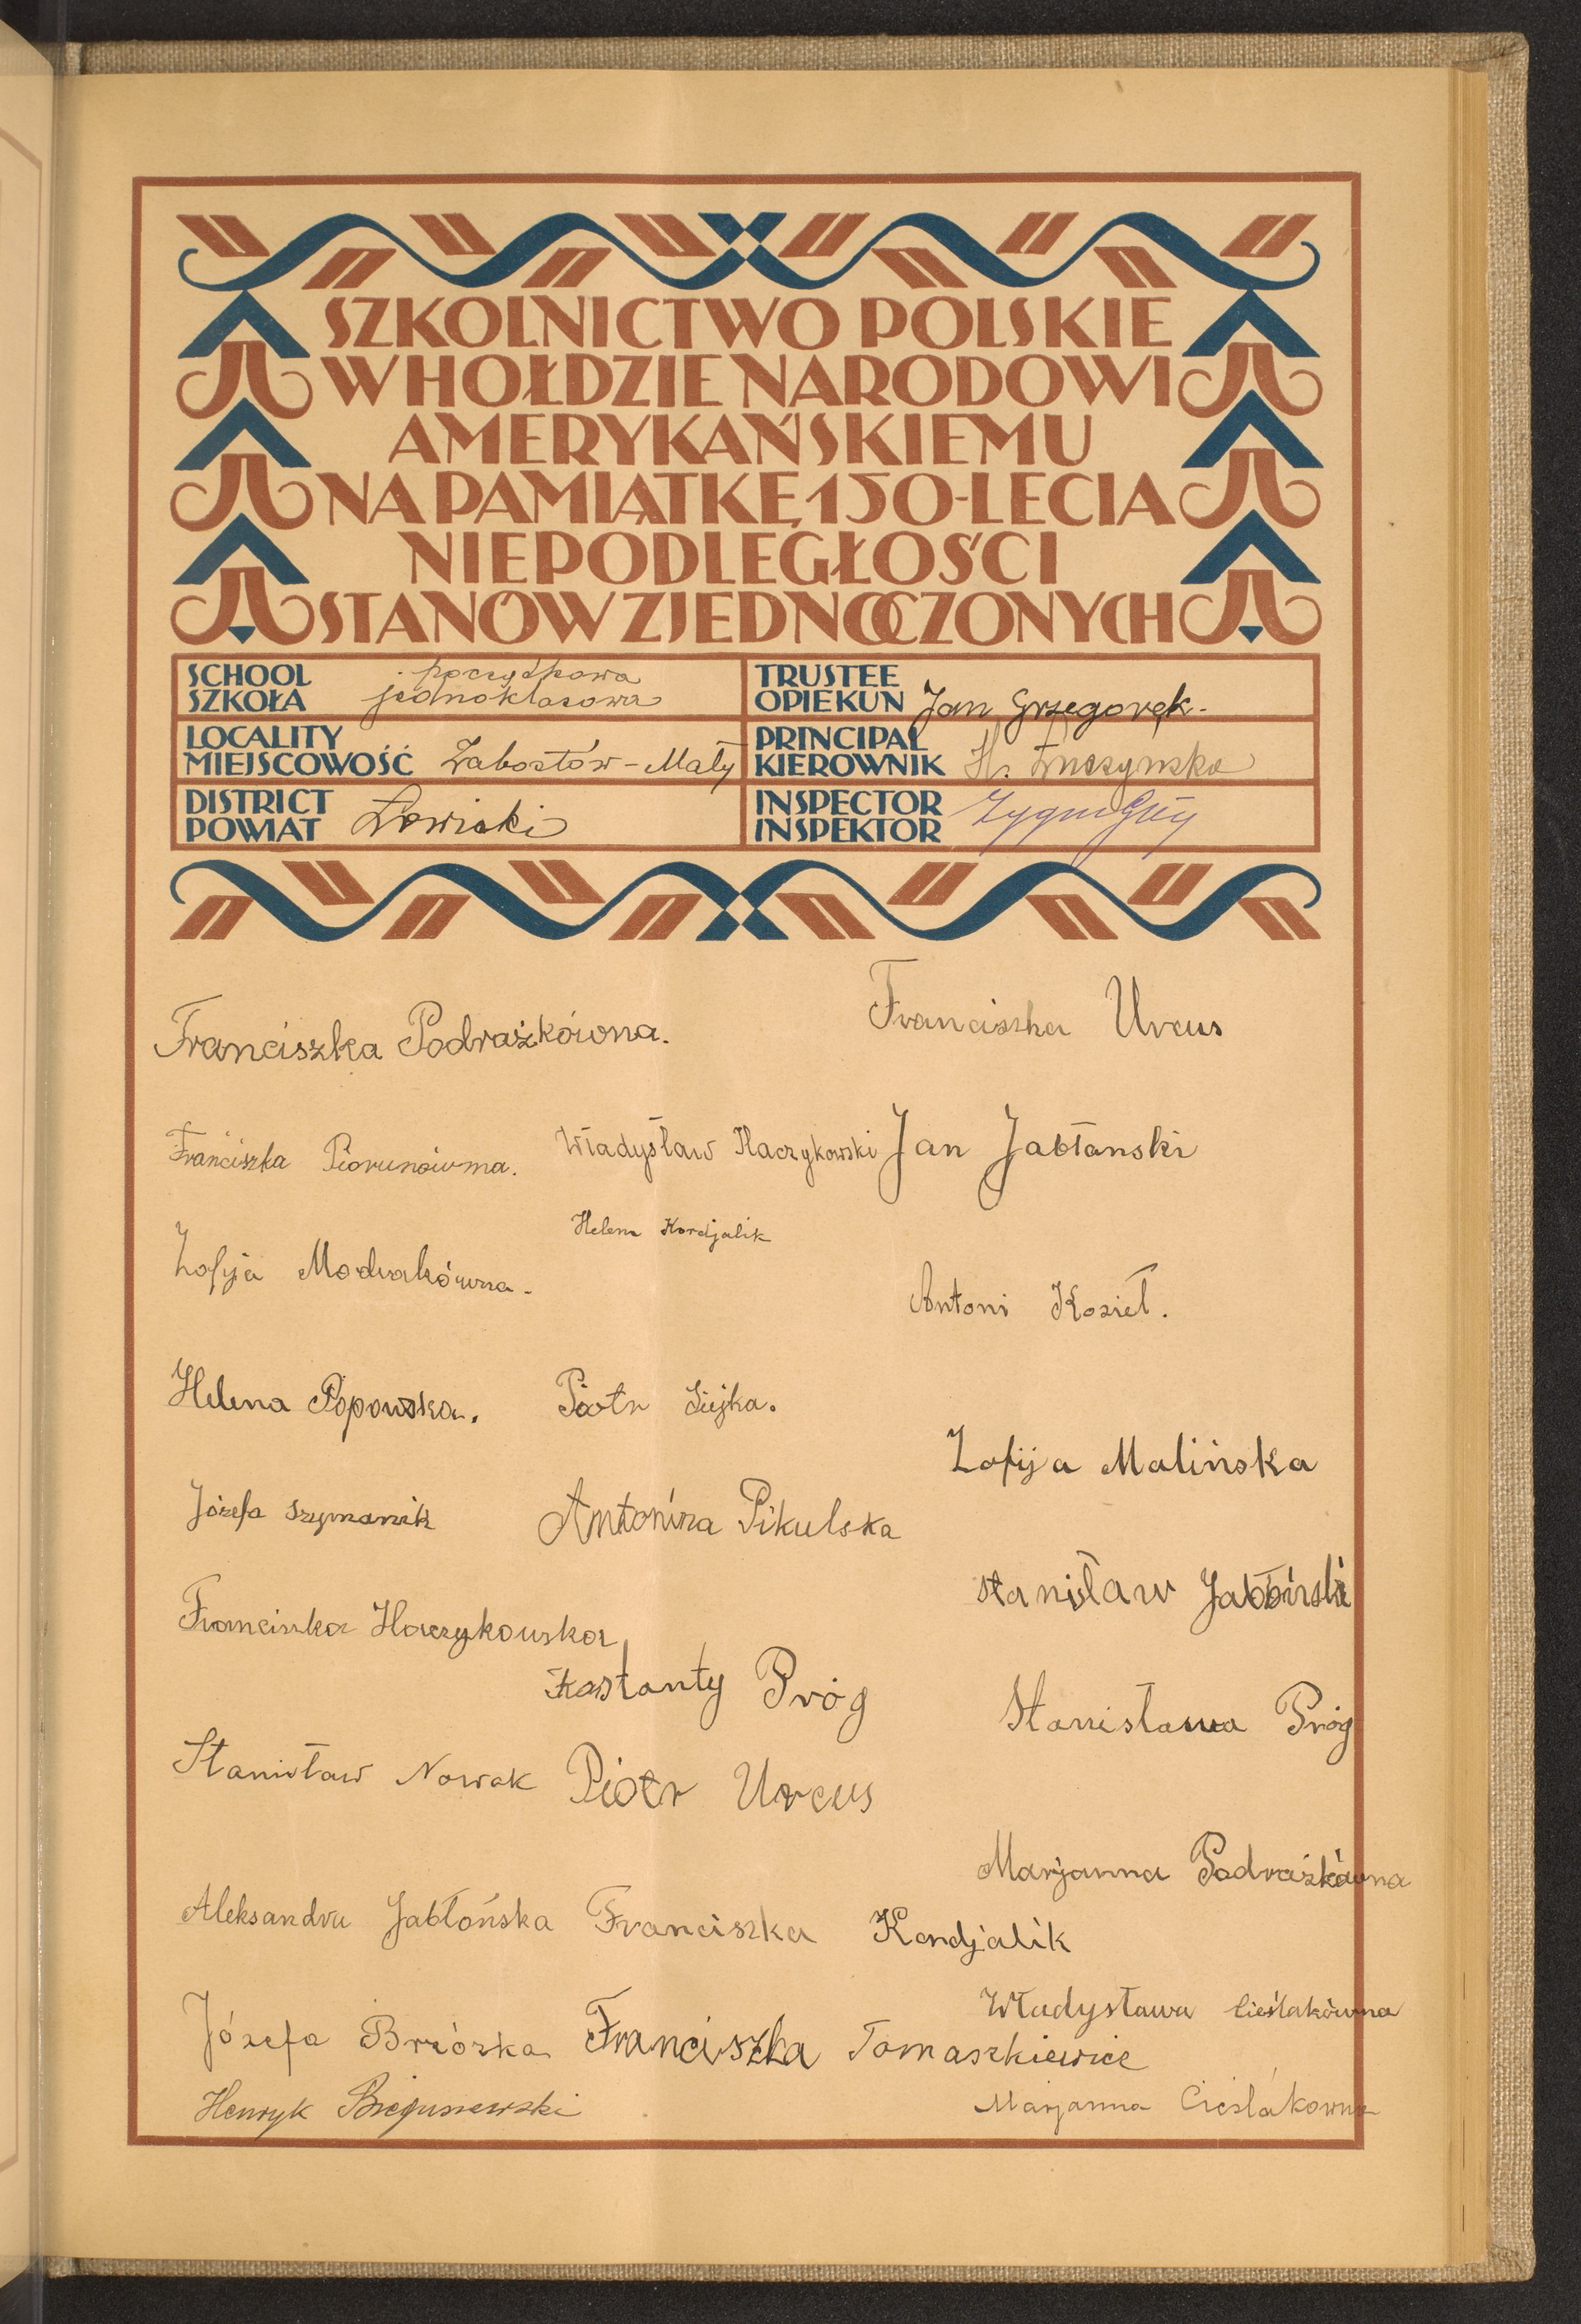 SZKOLNICTWO POLSKIE
W HOŁDZIE NARODOWI
AMERYKAŃSKIEMU
NA PAMIĄTKĘ 150-LECIA
NIEPODLEGŁOŚCI
STANÓW ZJEDNOCZONYCH
SCHOOL
SZKOŁA
początkowa
jednoklasowa
TRUSTEE
OPIEKUN Jan Grzegorek.
LOCALITY
MIEJSCOWOŚĆ Zabostów-Mały
PRINCIPAL
KIEROWNIK H.
DISTRICT
POWIAT Łowicki
INSPECTOR
INSPEKTOR
Franciszka Podrażkówna.
Franciszka Urcus
Franciszka Piorunówna.
Władysław Haczykowski
Jan Jabłanski
Helena Kordjalik
Zofija Modrakówna.
Antoni Kozieł.
Helena Popowska.
Piotr Siejka.
Zofija Malińska
Józefa Szymanik
Antonina Pikulska
Stanisław
Franciszka Haczykowska
Kastanty Próg
Stanisława Próg
Stanisław Nowak
Piotr Urcus
Marjanna Podrażkówna
Aleksandra Jabłońska
Franciszka Kordjalik
Władysława Cieślakówna
Józefa Brzózka
Franciszka Tomaszkiewicz
Henryk Bieguszewski
Marjanna Cieślakówna